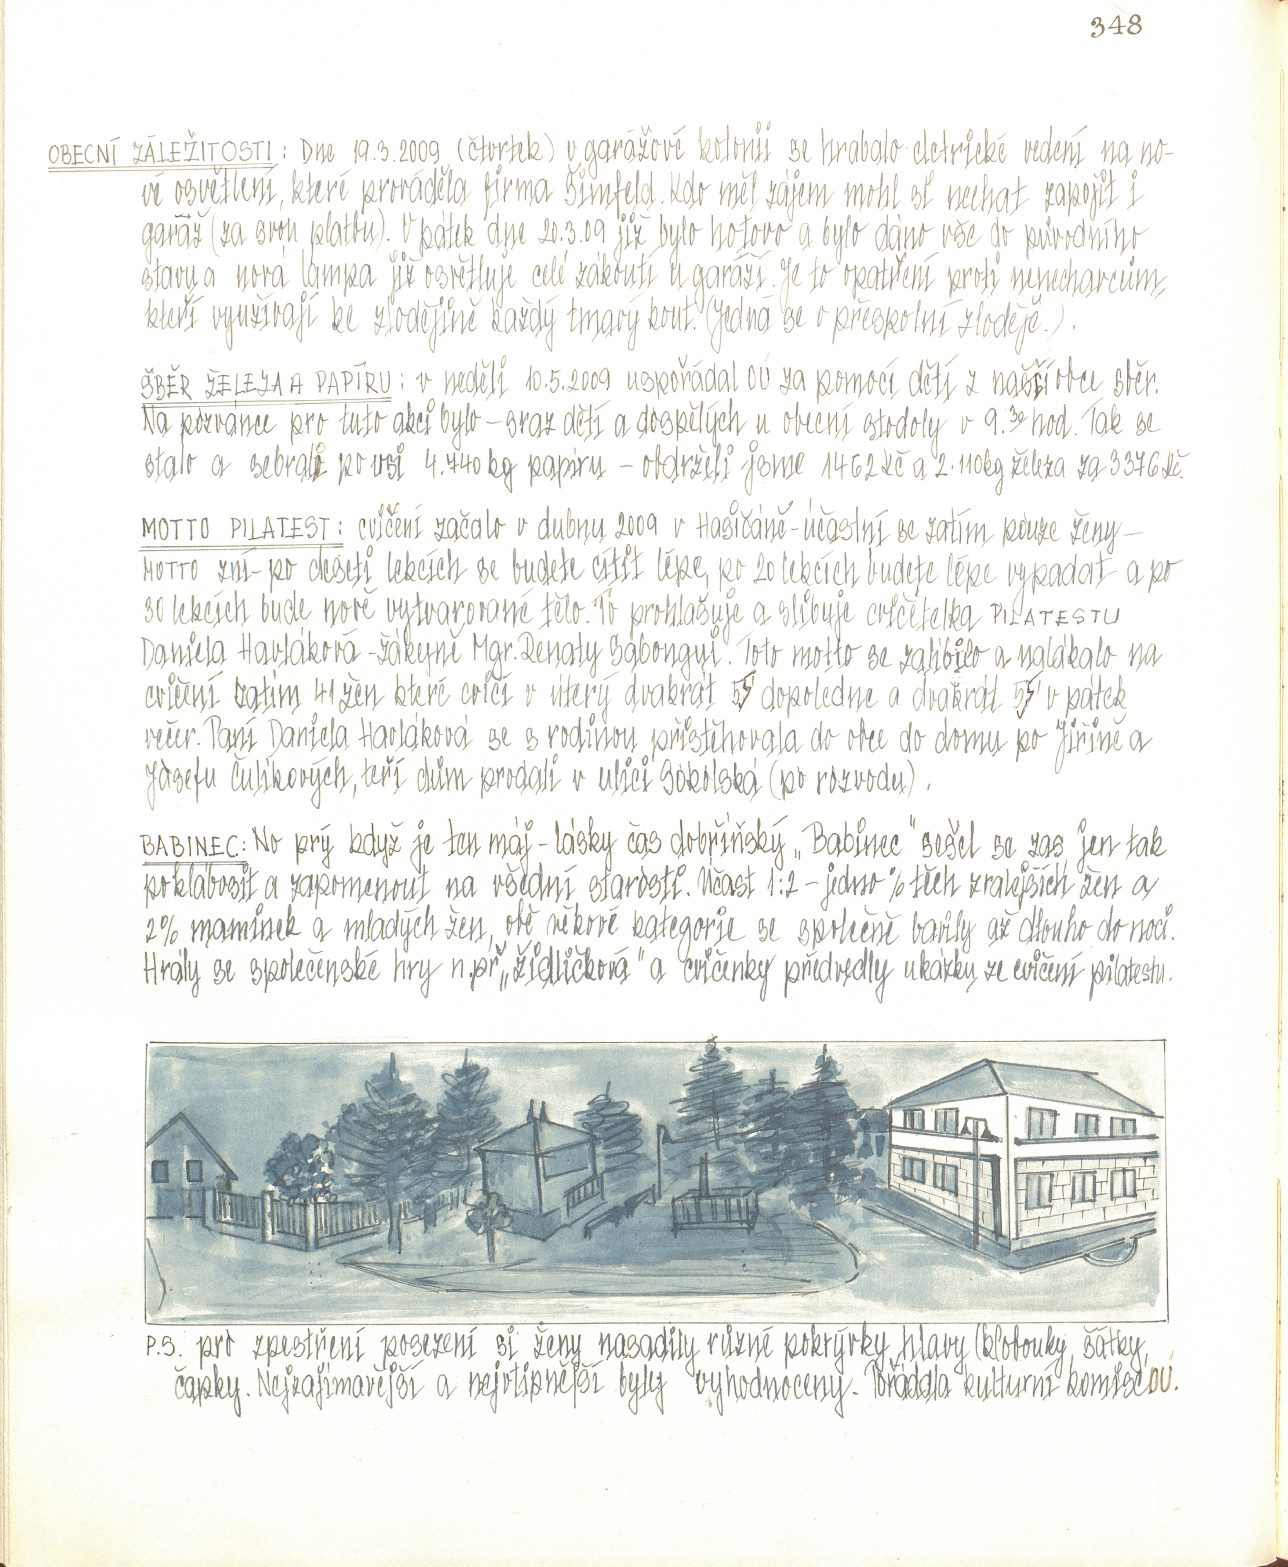 348
OBECNÍ ZÁLEŽITOSTI: Dne 19.3.2009 (čtvrtek) v garážové kolonii se hrabalo elctrické vedení na no-
vé osvětlení, které prováděla firma Šimfeld. Kdo měl zájem mohl si nechat zapojit i
garáž (za svou platbu). V pátek dne 20.3.09 již bylo hotovo a bylo dáno vše do původního
stavu a nová lampa již osvětluje celé zákoutí u garáží. Je to opatření proti nenechavcům,
kteří využívají ke zlodějině každý tmavý kout. (Jedná se o přespolní zloděje.).
SBĚR ŽELEZA A PAPÍRU: v neděli 10.5.2009 uspořádal OÚ za pomoci dětí z naší obce sběr.
Na pozvánce pro tuto akci bylo – sraz dětí a dospělých u obecní stodoly v 9.30 hod. Tak se
stalo a sebrali po vsi 4.740 kg papíru – obdrželi jsme 1462 Kč a 2.110 kg železa za 3376 Kč.
MOTTO PILATEST: cvičení začalo v dubnu 2009 v Hasičáně – účastní se zatím pouze ženy –
MOTTO zní – po deseti lekcích se budete cítit lépe, po 20 lekcích budete lépe vypadat a po
30 lekcích bude nově vytvarované tělo. To prohlašuje a slibuje cvičitelka PILATESTU
Daniela Havláková – žákyně Mgr. Renaty Sabongui. Toto motto se zalíbilo a nalákalo na
cvičení zatím 41 žen které cvičí v úterý dvakrát 55' dopoledne a dvakrát 55' v pátek
večer. Paní Daniela Havláková se s rodinou přistěhovala do obce do domu po Jiřině a
Josefu Čulíkových, teří dům prodali v ulici Sokolská (po rozvodu).
BABINEC: No prý když je ten máj – lásky čas dobříňský „Babinec" sešel se zas jen tak
poklábosit a zapomenout na všední starosti. Účast 1:2 – jedno % těch zralejších žen a
2% maminek a mladých žen, obě věkové kategorie se společně bavily až dlouho do noci.
Hrály se společenské hry n.př „židličková" a cvičenky předvedly ukázku ze cvičení pilatestu.
P.S. pro zpestření posezení si ženy nasadily různé pokrývky hlavy (klobouky, šátky,
čapky. Nejzajímavější a nejvtipnější byly vyhodnoceny. Pořádala kulturní komise OÚ.